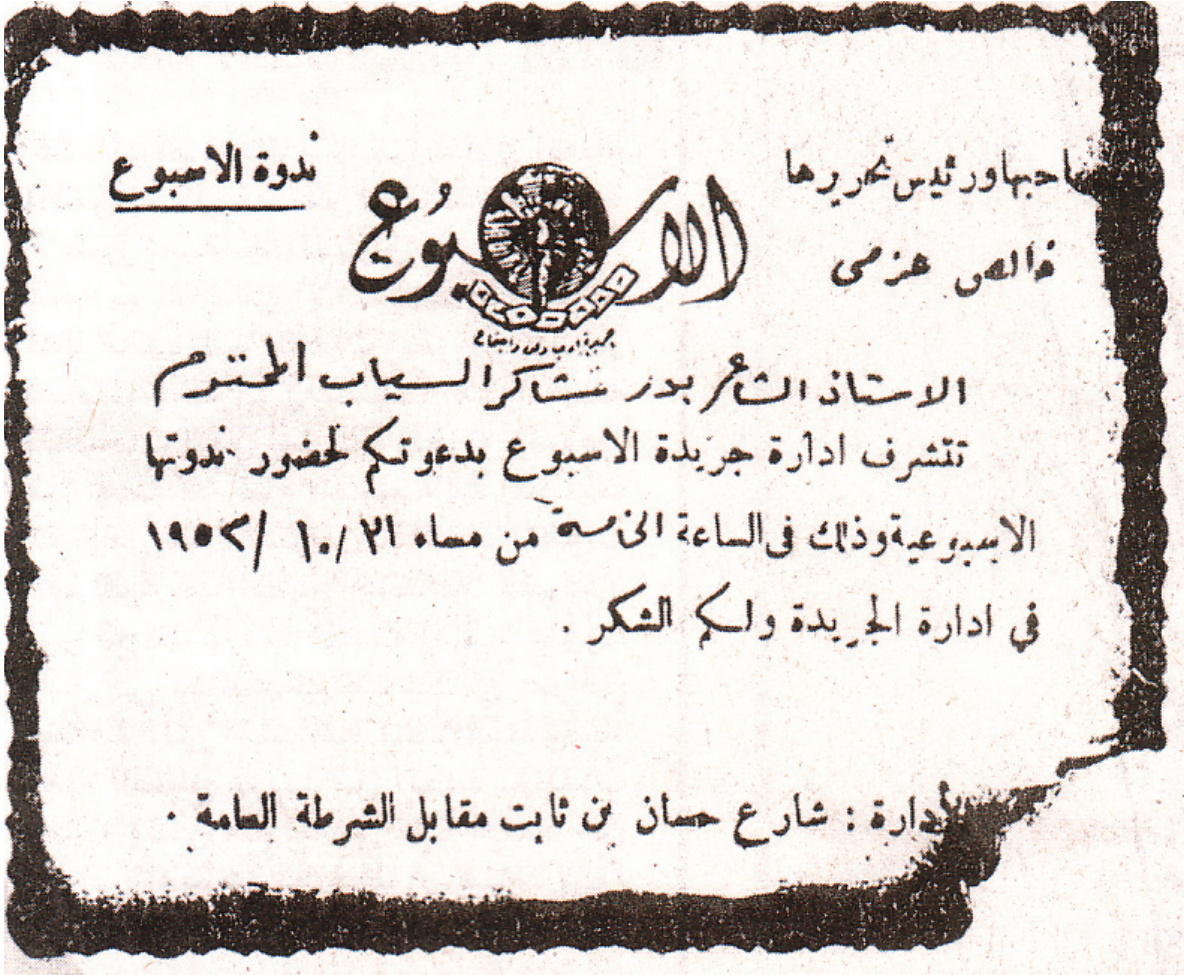 صاحبها ورئيس تحريرها
خالص عزمي
الاسبوع
ندوة الاسبوع
الاستاذ الشاعر بدر شاكر السياب المحترم
تتشرف ادارة جريدة الاسبوع بدعوتكم لحضور ندوتها
الاسبوعية وذلك في الساعة الخامسة من مساء ٢١/ ١٠/ ١٩٥٢
في ادارة الجريدة ولكم الشكر .
الأدارة : شارع حسان بن ثابت مقابل الشرطة العامة .